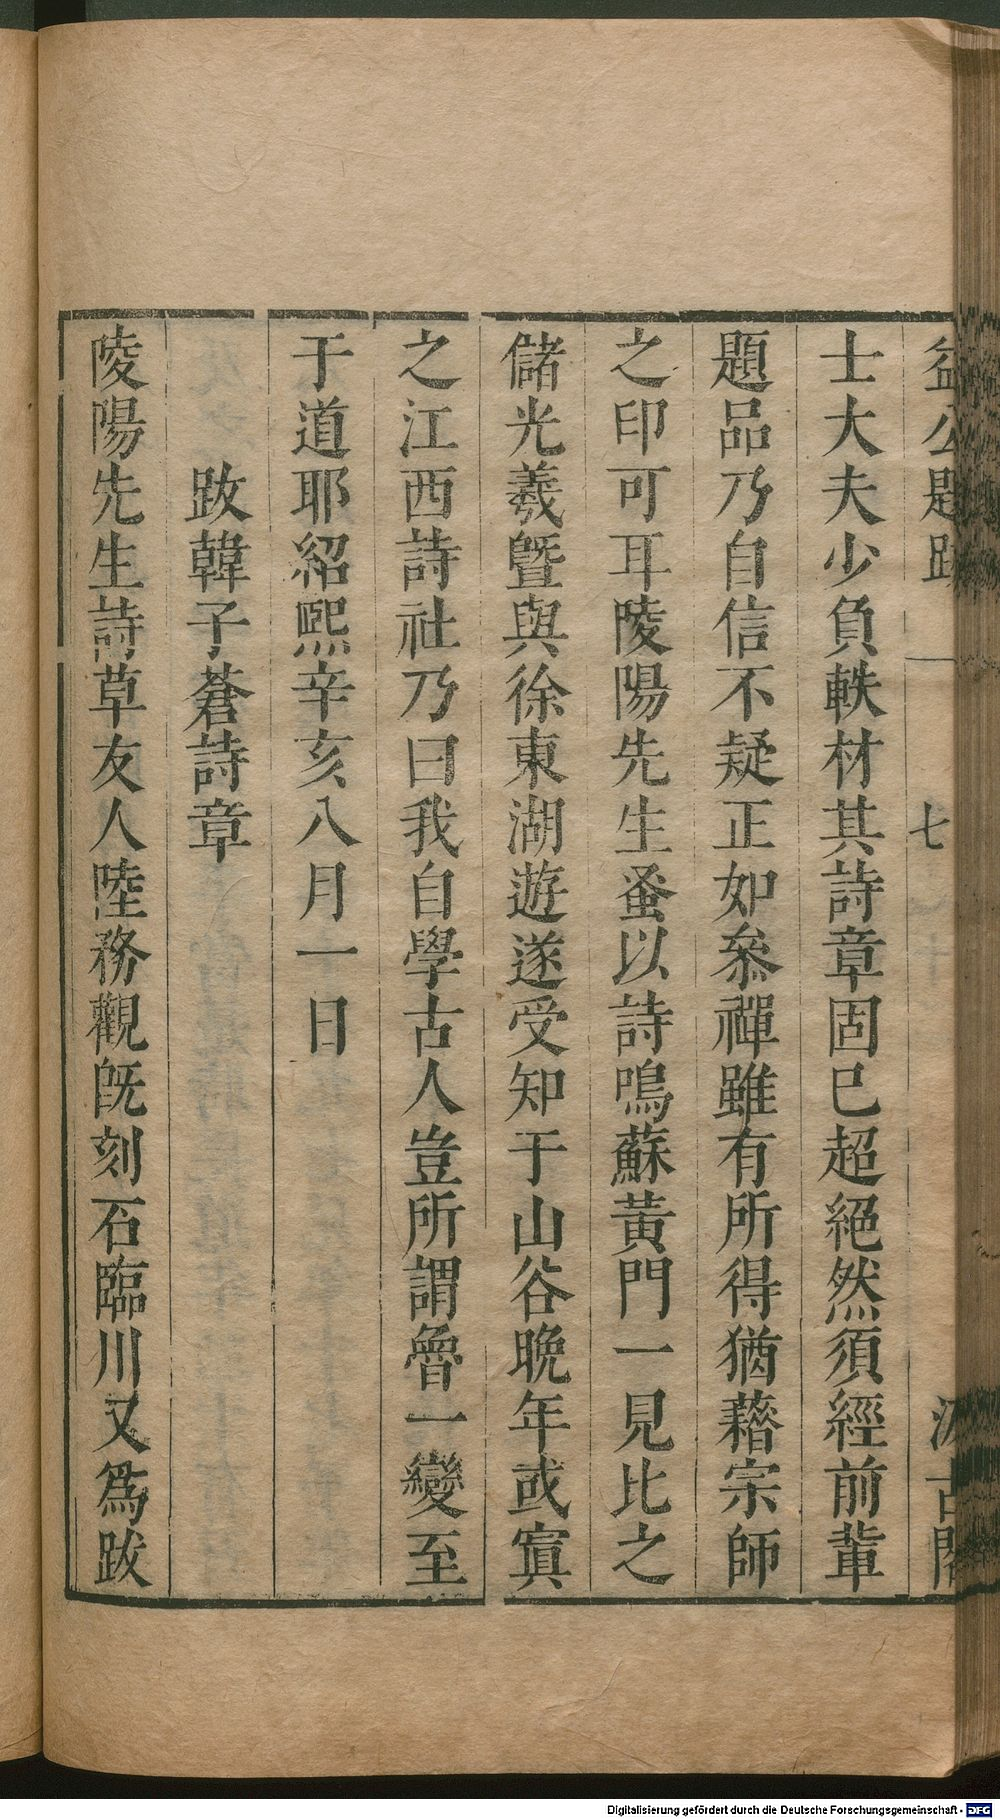 益公題跋 七 汲古閣
士大夫少負軼材其詩章固已超絕然須經前輩
題品乃自信不疑正如叅禪雖有所得猶藉宗師
之印可耳陵陽先生蚤以詩鳴蘇黃門一見比之
儲光羲曁與徐東湖遊遂受知于山谷晚年或寘
之江西詩社乃曰我自學古人豈所謂魯一變至
于道耶紹熙辛亥八月一日
跋韓子蒼詩章
陵陽先生詩草友人陸務觀旣刻石臨川又爲跋
Digitalisierung gefördert durch die Deutsche Forschungsgemeinschaft - DFG